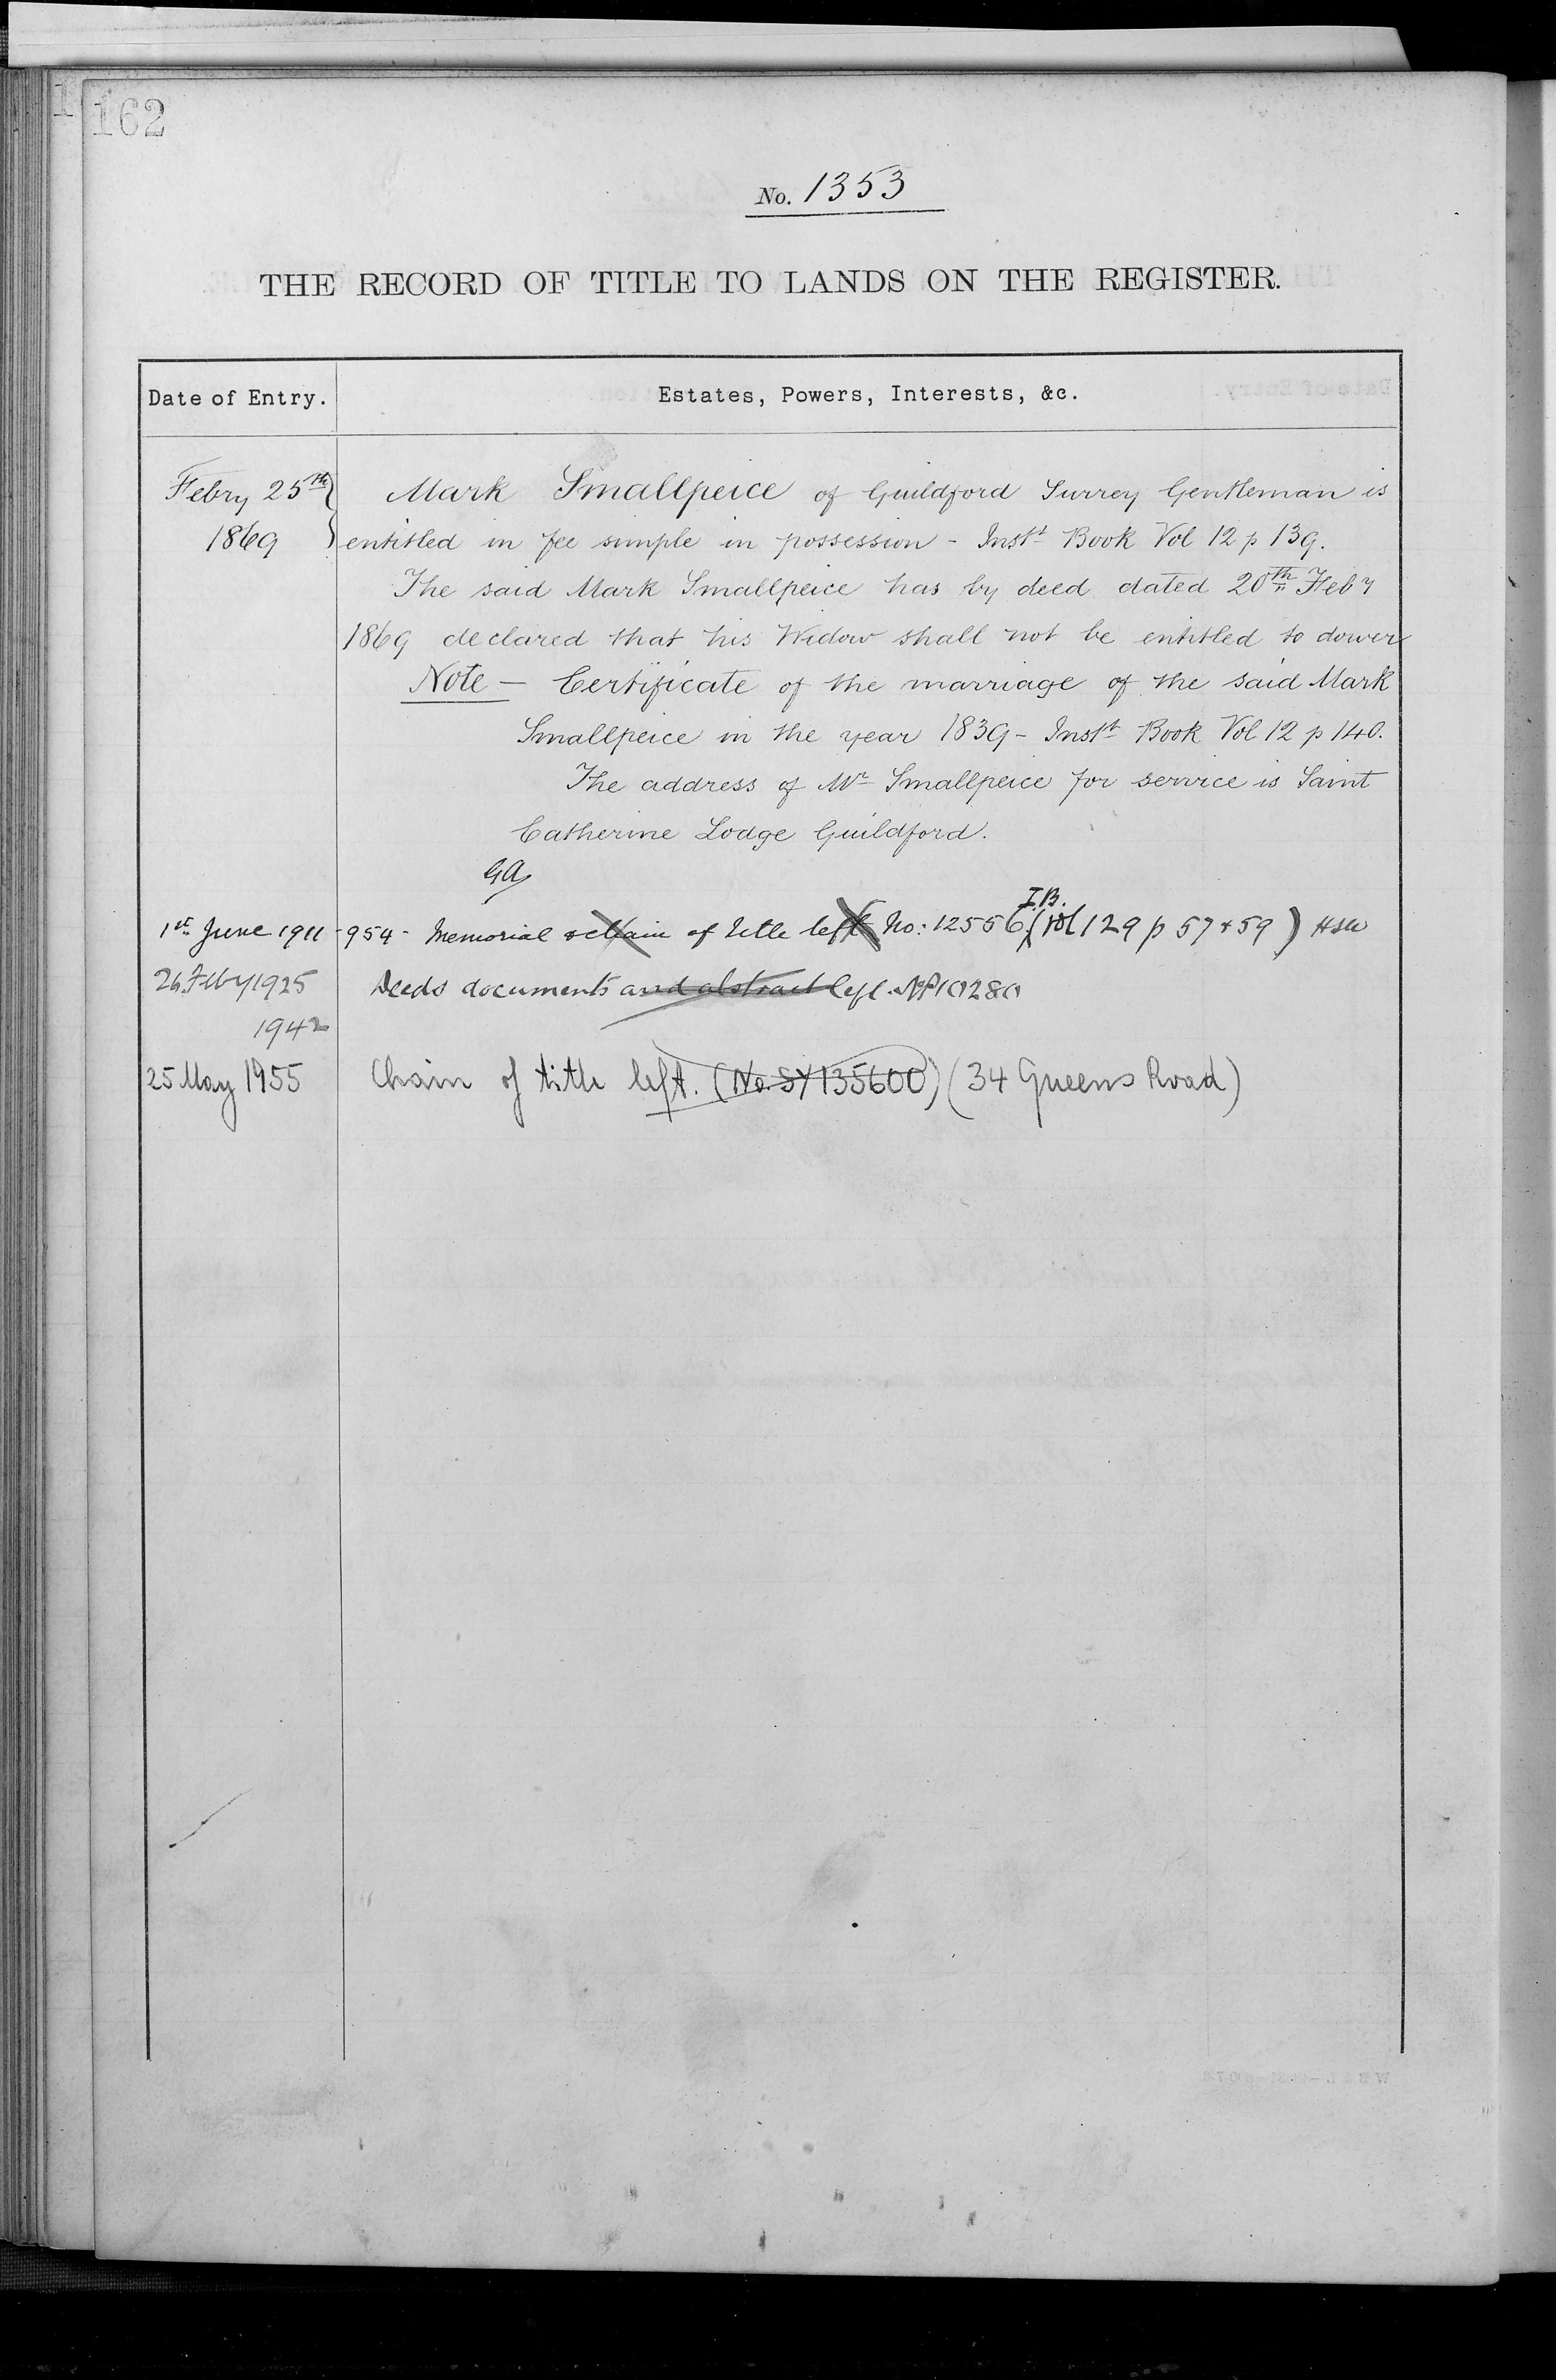 162
No. 1353
THE RECORD OF TITLE TO LANDS ON THE REGISTER.
Date of Entry. Estates, Powers, Interests, &c.
Febry 25th Mark Smallpeice of Guildford Surrey Gentleman is
1869 entitled in fee simple in possession - Instt Book Vol 12 p 139.
The said Mark Smallpeice has by deed dated 20th Feby
1869 declared that his Widow shall not be entitled to dower
Note - Certificate of the marriage of the said Mark
Smallpeice in the year 1839 - Instt Book Vol 12 p 140.
The address of Mr Smallpeice for service is Saint
Catherine Lodge Guildford.
GA
I.B.
1st June 1911 - 954 - Memorial & chain of title left No: 12556 (Vol 129 p 57 & 59)
26 Feby 1925 Deeds documents and abstract left. NP 10280
1942
25 May 1955 Chain of title left. (No. SY135600) (34 Queens Road)